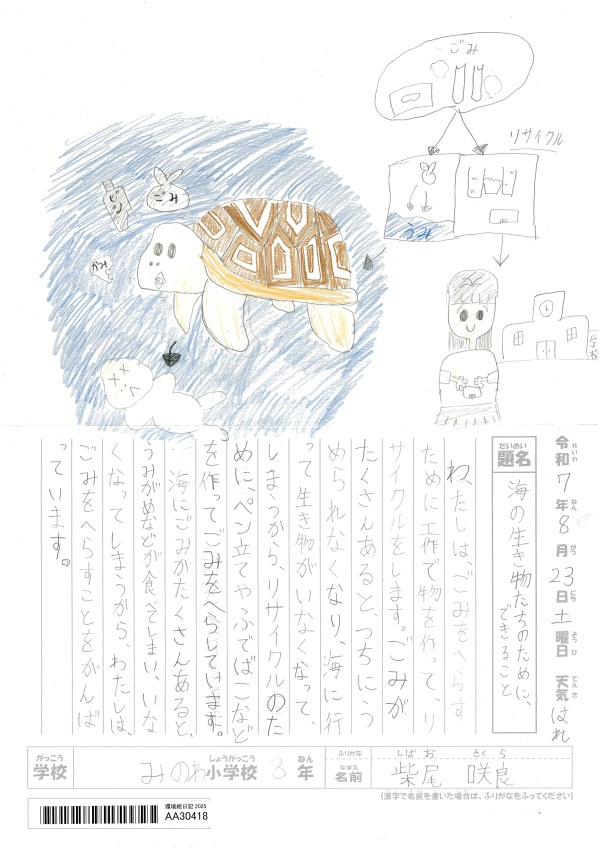 ごみ
リサイクル
うみ
ビン
ごみ
かみ
学校
令和7年8月23日土曜日 天気はれ
れいわ ねん がつ にち ようび てんき
だいめい
題名
海の生き物たちのために、
できること
わたしは、ごみをへらす
ために工作で物を作って、リ
サイクルをします。ごみが
たくさんあると、つちにう
められなくなり、海に行
って生き物がいなくなって、
しまうから、リサイクルのた
めに、ペン立てやふでばこなど
を作ってごみをへらしています。
海にごみがたくさんあると、
うみがめなどが食べてしまい、いな
くなってしまうから、わたしは、
ごみをへらすことをがんば
っています。
がっこう
学校
しょうがっこう ねん
みのわ小学校 3年
ふりがな
しばお さくら
なまえ
名前
柴尾 咲良
(漢字で名前を書いた場合は、ふりがなをふってください)
環境絵日記 2025
AA30418